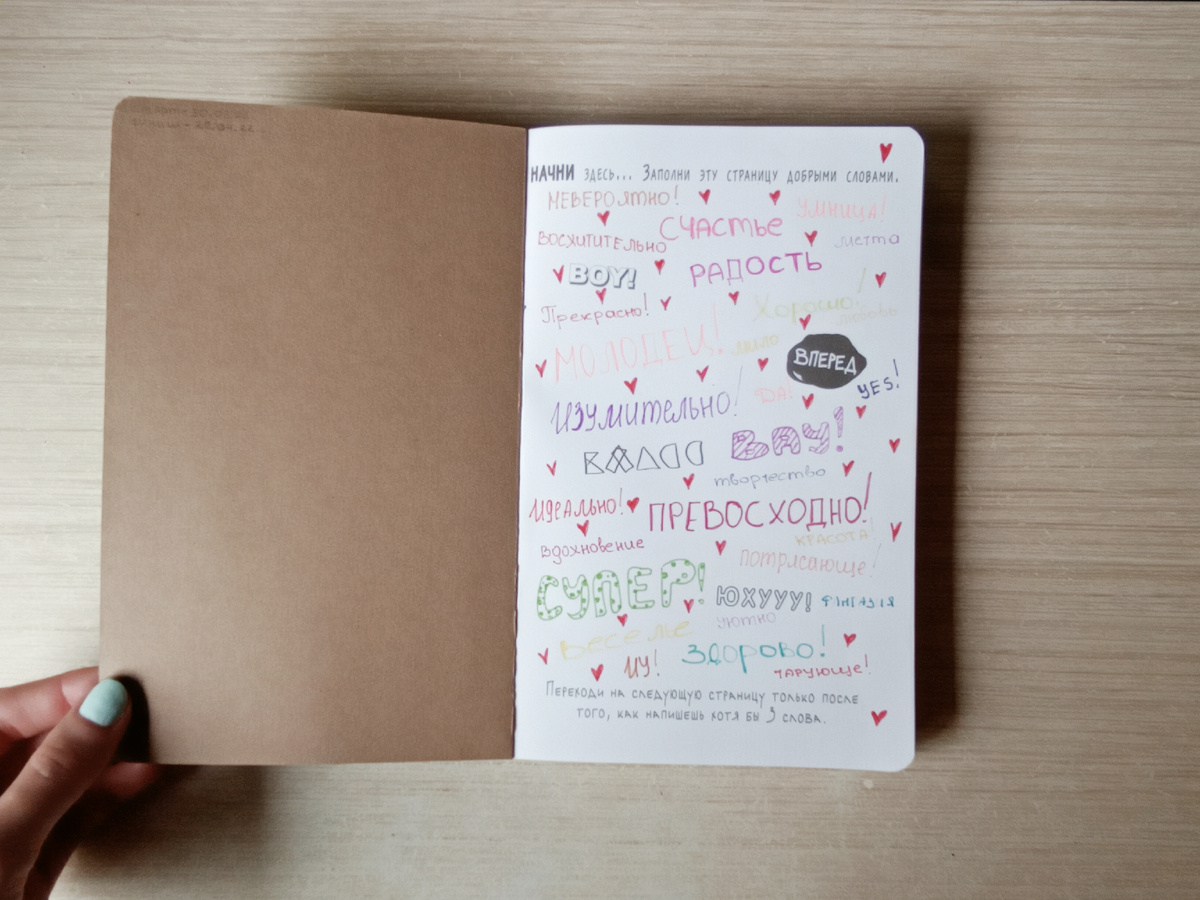 НАЧНИ ЗДЕСЬ... ЗАПОЛНИ ЭТУ СТРАНИЦУ ДОБРЫМИ СЛОВАМИ.
НЕВЕРОЯТНО!
УМНИЦА!
СЧАСТЬЕ
ВОСХИТИТЕЛЬНО
мечта
РАДОСТЬ
ВОУ!
Хорошо!
Прекрасно!
любовь
МОЛОДЕЦ!
мило
ВПЕРЕД
ДА!
YES!
ИЗУМИТЕЛЬНО!
ВАУ!
творчество
ИДЕАЛЬНО!
ПРЕВОСХОДНО!
КРАСОТА!
вдохновение
ПОТРЯСАЮЩЕ!
СУПЕР!
ЮХУУУ!
уютно
Веселье
Здорово!
ЧАРУЮЩЕ!
ПЕРЕХОДИ НА СЛЕДУЮЩУЮ СТРАНИЦУ ТОЛЬКО ПОСЛЕ
ТОГО, КАК НАПИШЕШЬ ХОТЯ БЫ 3 СЛОВА.